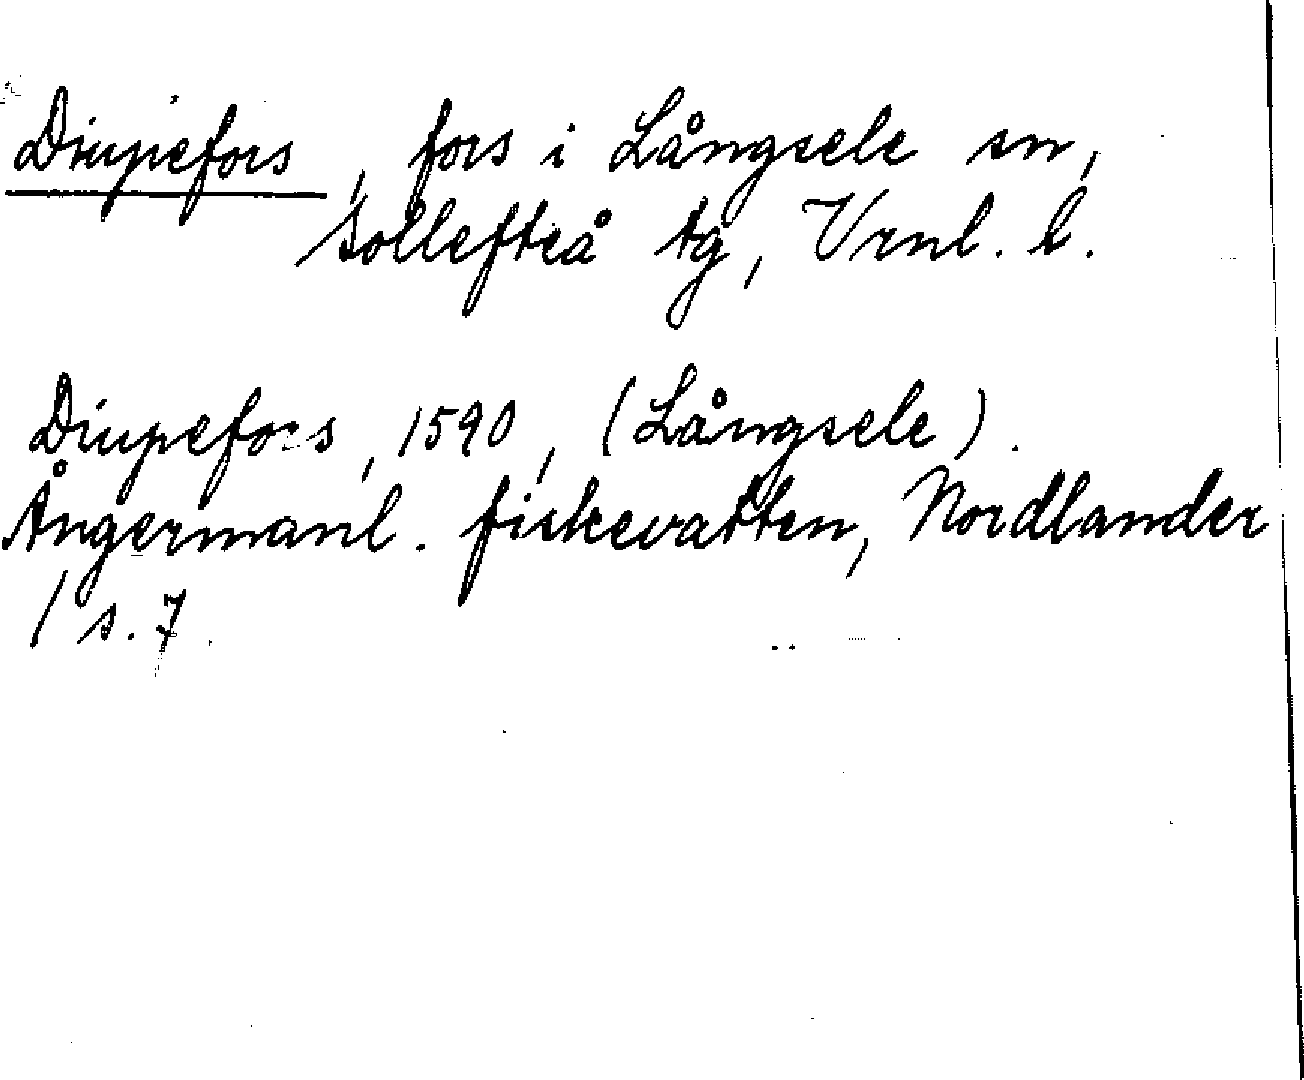 Diupefors, fors i Långsele sn,
Sollefteå tg, Vrnl. l.
Diupefors, 1590, (Långsele).
Ångermanl. fiskevatten, Nordlander
/ s. 7